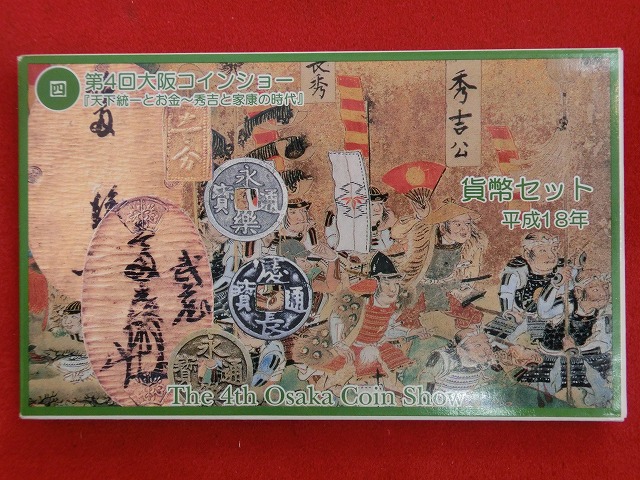 四
第4回大阪コインショー
『天下統一とお金~秀吉と家康の時代』
長秀
秀吉公
貨幣セット
平成18年
永樂通寳
慶長通寳
永樂通寳
武蔵
The 4th Osaka Coin Show